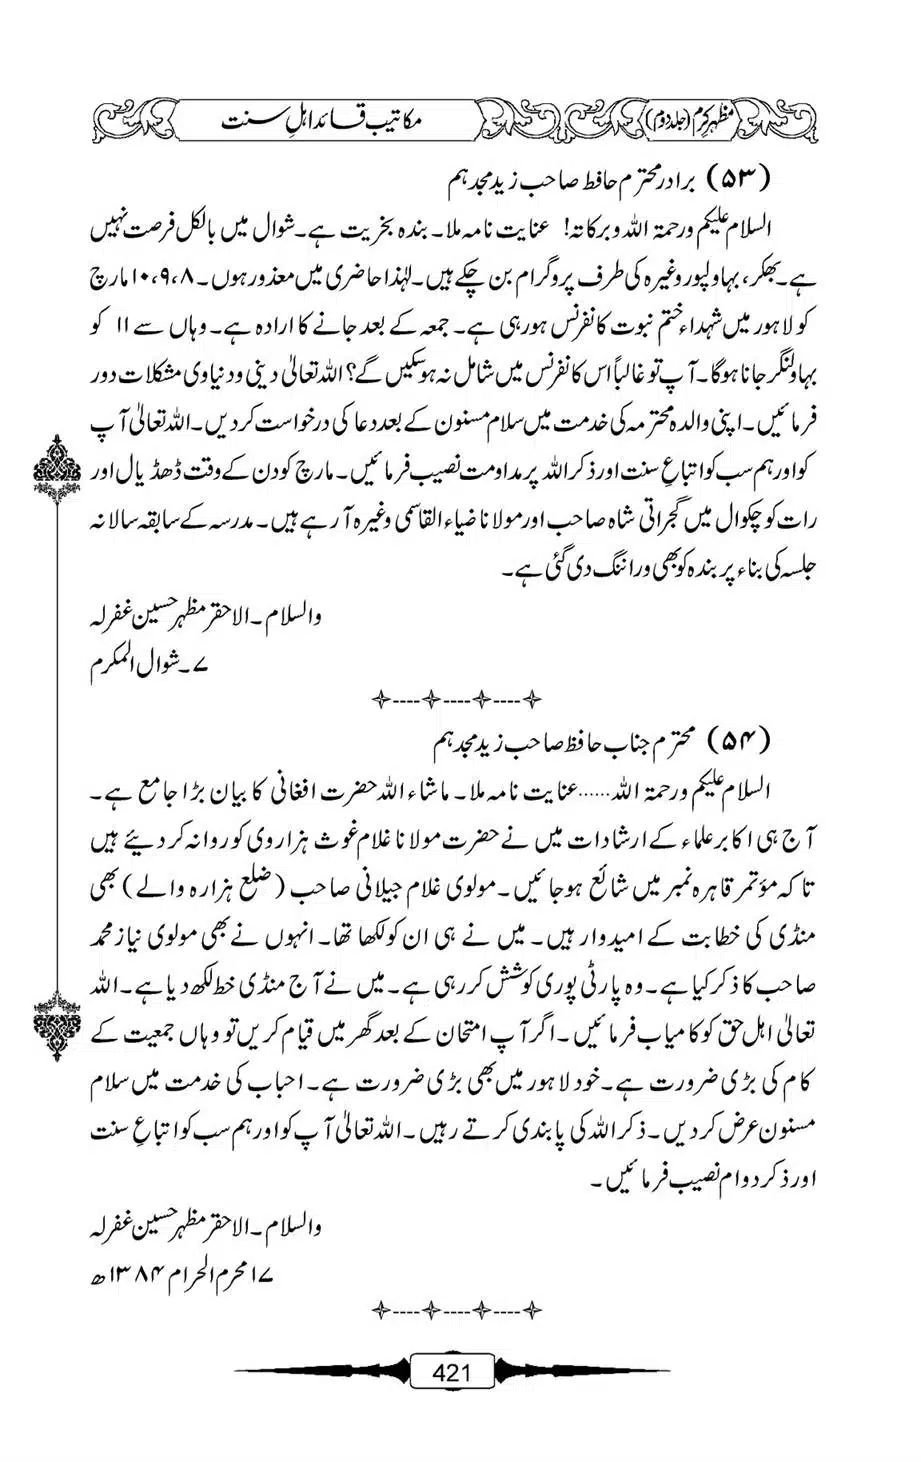 مظہر کرم (جلد دوم)
مکاتیب قائد اہل سنت
(۵۳) برادر محترم حافظ صاحب زید مجدہم
السلام علیکم ورحمۃ اللہ وبرکاتہ! عنایت نامہ ملا۔ بندہ بخریت ہے۔ شوال میں بالکل فرصت نہیں
ہے۔ بھکر، بہاولپور وغیرہ کی طرف پروگرام بن چکے ہیں۔ لہٰذا حاضری میں معذور ہوں۔ ۱۰،۹،۸ مارچ
کو لاہور میں شہداء ختم نبوت کانفرنس ہو رہی ہے۔ جمعہ کے بعد جانے کا ارادہ ہے۔ وہاں سے ۱۱ کو
بہاولنگر جانا ہوگا۔ آپ تو غالباً اس کانفرنس میں شامل نہ ہوسکیں گے؟ اللہ تعالیٰ دینی و دنیاوی مشکلات دور
فرمائیں۔ اپنی والدہ محترمہ کی خدمت میں سلام مسنون کے بعد دعا کی درخواست کر دیں۔ اللہ تعالیٰ آپ
کو اور ہم سب کو اتباعِ سنت اور ذکر اللہ پر مداومت نصیب فرمائیں۔ مارچ کو دن کے وقت ڈھڈیال اور
رات کو چکوال میں گجراتی شاہ صاحب اور مولانا ضیاء القاسمی وغیرہ آ رہے ہیں۔ مدرسہ کے سابقہ سالانہ
جلسہ کی بناء پر بندہ کو بھی وراننگ دی گئی ہے۔
والسلام۔ الاحقر مظہر حسین غفرلہ
۷۔ شوال المکرم
(۵۴) محترم جناب حافظ صاحب زید مجدہم
السلام علیکم ورحمۃ اللہ...... عنایت نامہ ملا۔ ماشاء اللہ حضرت افغانی کا بیان بڑا جامع ہے۔
آج ہی اکابر علماء کے ارشادات میں نے حضرت مولانا غلام غوث ہزاروی کو روانہ کر دیئے ہیں
تاکہ مؤتمر قاہرہ نمبر میں شائع ہو جائیں۔ مولوی غلام جیلانی صاحب (ضلع ہزارہ والے) بھی
منڈی کی خطابت کے امیدوار ہیں۔ میں نے ہی ان کو لکھا تھا۔ انہوں نے بھی مولوی نیاز محمد
صاحب کا ذکر کیا ہے۔ وہ پارٹی پوری کوشش کر رہی ہے۔ میں نے آج منڈی خط لکھ دیا ہے۔ اللہ
تعالیٰ اہل حق کو کامیاب فرمائیں۔ اگر آپ امتحان کے بعد گھر میں قیام کریں تو وہاں جمعیت کے
کام کی بڑی ضرورت ہے۔ خود لاہور میں بھی بڑی ضرورت ہے۔ احباب کی خدمت میں سلام
مسنون عرض کر دیں۔ ذکر اللہ کی پابندی کرتے رہیں۔ اللہ تعالیٰ آپ کو اور ہم سب کو اتباعِ سنت
اور ذکر دوام نصیب فرمائیں۔
والسلام۔ الاحقر مظہر حسین غفرلہ
۱۷ محرم الحرام ۱۳۸۴ھ
421